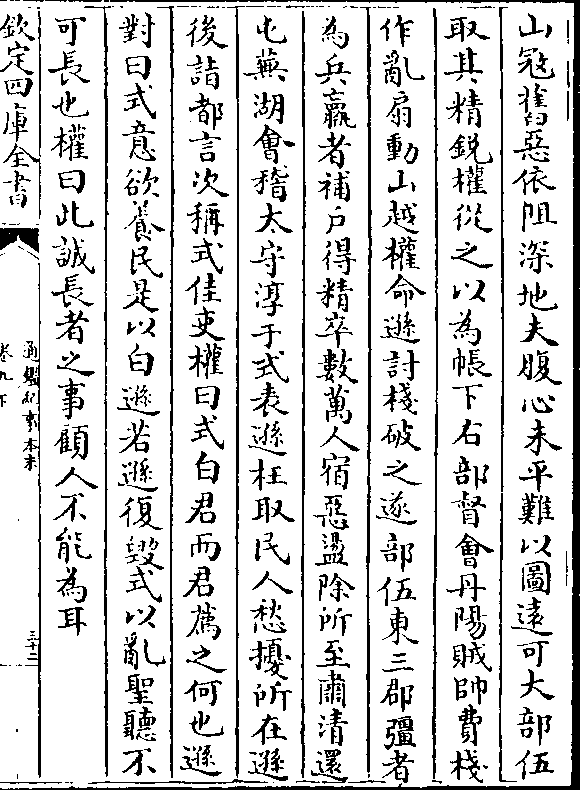 山寇舊惡依阻深地夫腹心未平難以圖逺可大部伍
取其精鋭權從之以為帳下右部督會丹陽賊帥費棧
作亂扇動山越權命遜討棧破之遂部伍東三郡彊者
為兵羸者補戶得精卒數萬人宿惡盪除所至肅清還
屯蕪湖會稽太守淳于式表遜枉取民人愁擾所在遜
後詣都言次稱式佳吏權曰式白君而君薦之何也遜
對曰式意欲養民是以白遜若遜復毀式以亂聖聽不
可長也權曰此誠長者之事顧人不能為耳
欽定四庫全書
通鑑紀事本末
卷九下
三十二